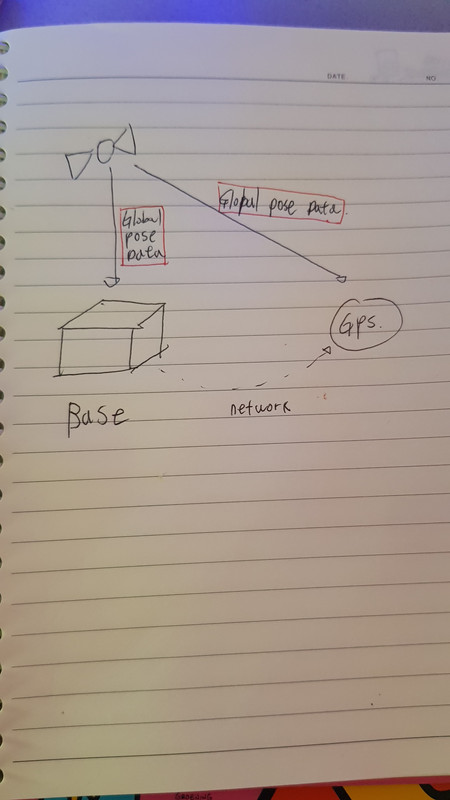 DATE
NO
Global pose data.
Global
pose
data
Gps.
Base
network